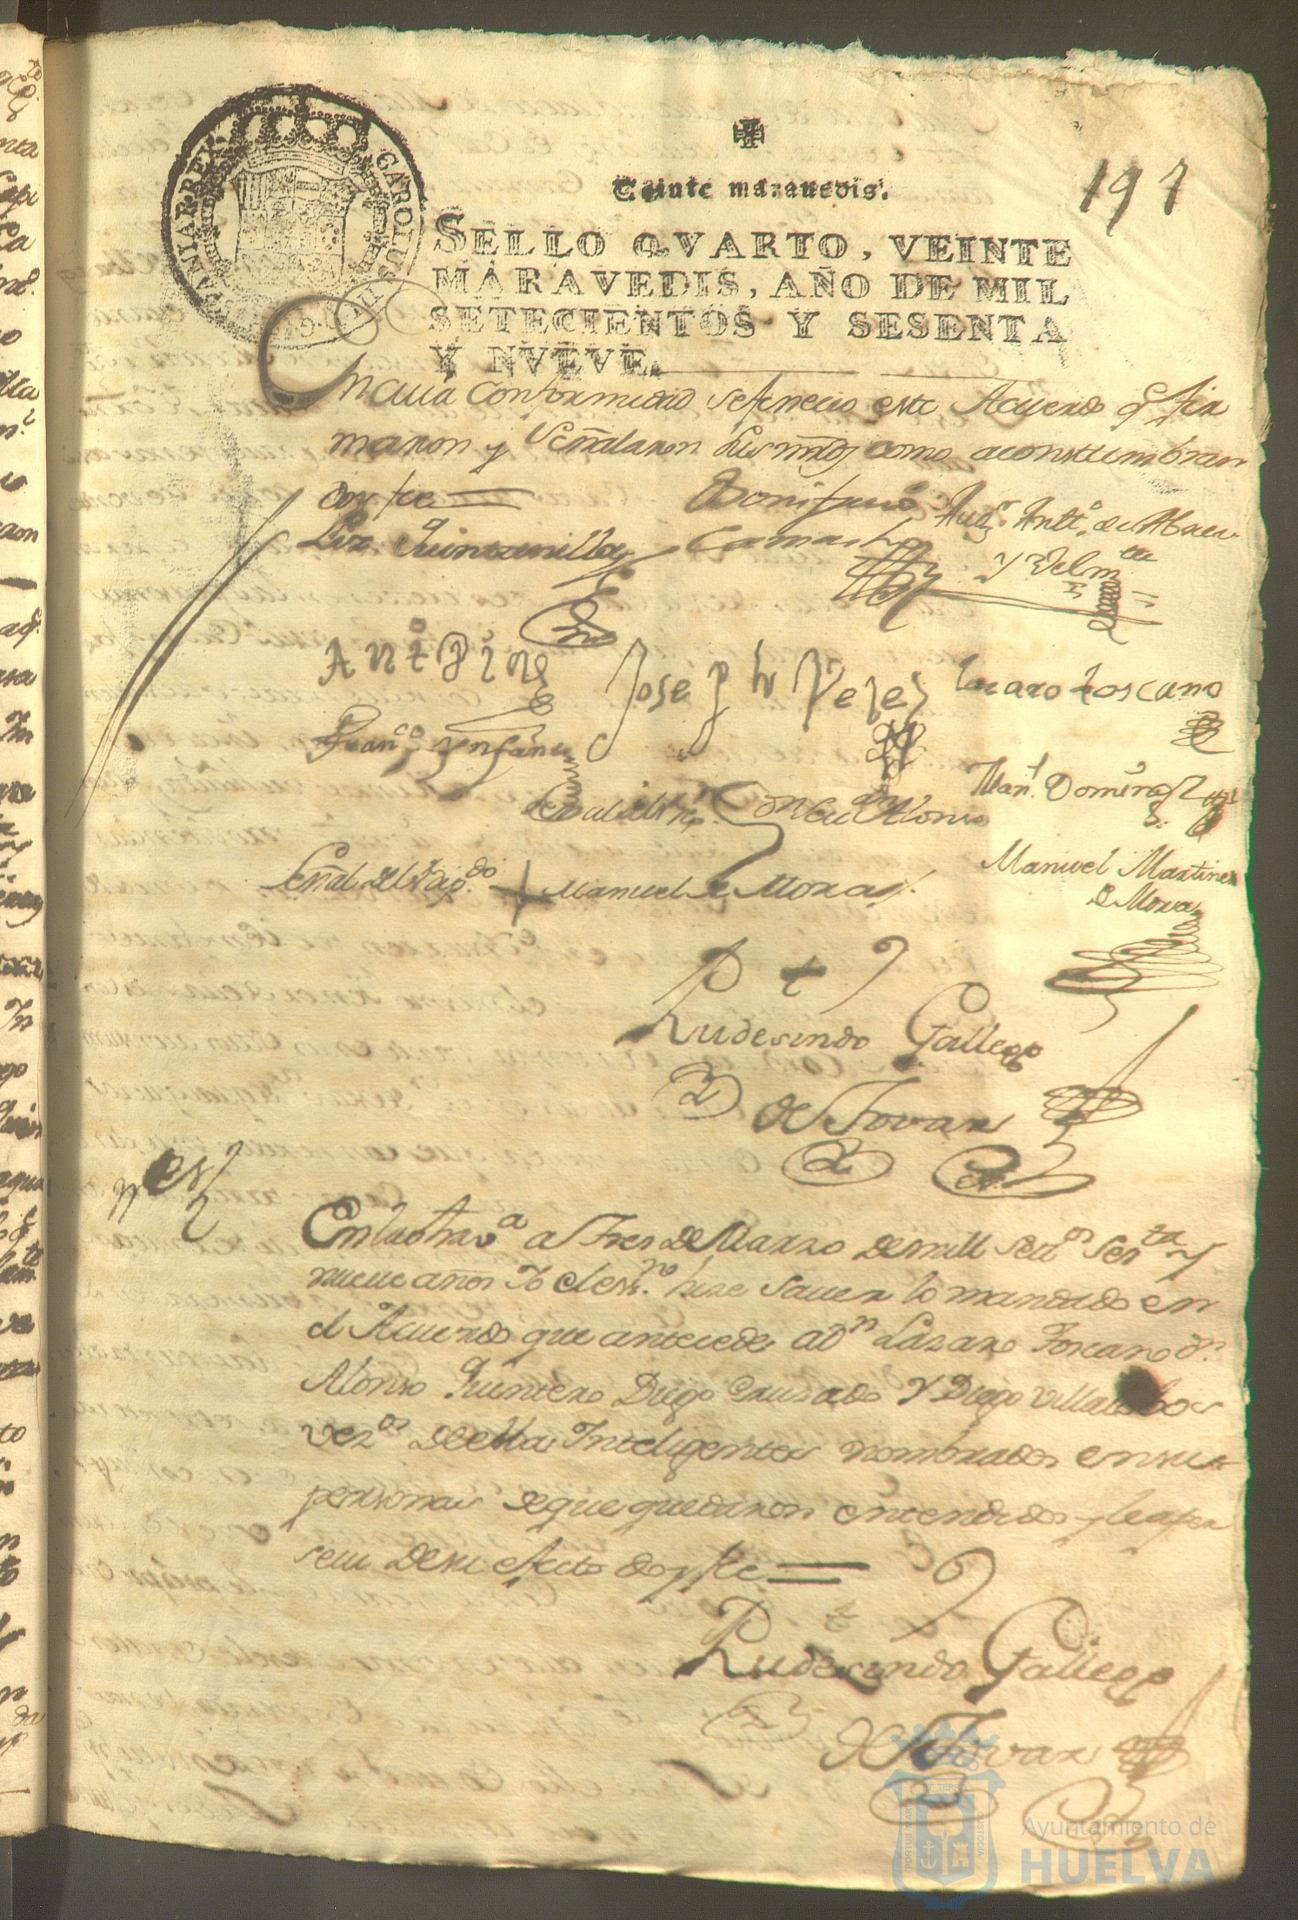 197
CAROLUS III D G HISPANIAR REX
Veinte maravedis.
SELLO QVARTO, VEINTE
MARAVEDIS, AÑO DE MIL
SETECIENTOS Y SESENTA
Y NVEVE.
En cuia conformidad se fenecio este Acuerdo q̃ fir
maron y señalaron sus mrds como acostumbran
doy fee =
Liz. Quintanilla
Bonifacio
Camacho
Aug.n Antt.o de Abreu
y Delm
Ant.o Pine
Joseph Velez
Lazaro toscano
Fran.co Ynfante
Man.l Doming.z
Alonso
Señal del Reg.do
+
Manuel de Mora
Manuel Martinez
de Mora
Rudesindo Gallego
de Tovar
En la otra v.a a tres de Marzo de mill set.os ses.ta y
nueve años Yo el ess.no hize saver lo mandado en
el Acuerdo que antecede a D.n Lazaro Toscano D.n
Alonso Quintero Diego Cruzado Y Diego Villalobos
vez.os de ella Inteligentes nombrados en sus
personas de que quedaron entendidos
de su efecto doy fee =
Rudesindo Gallego
de Tovar
Ayuntamiento de
HUELVA